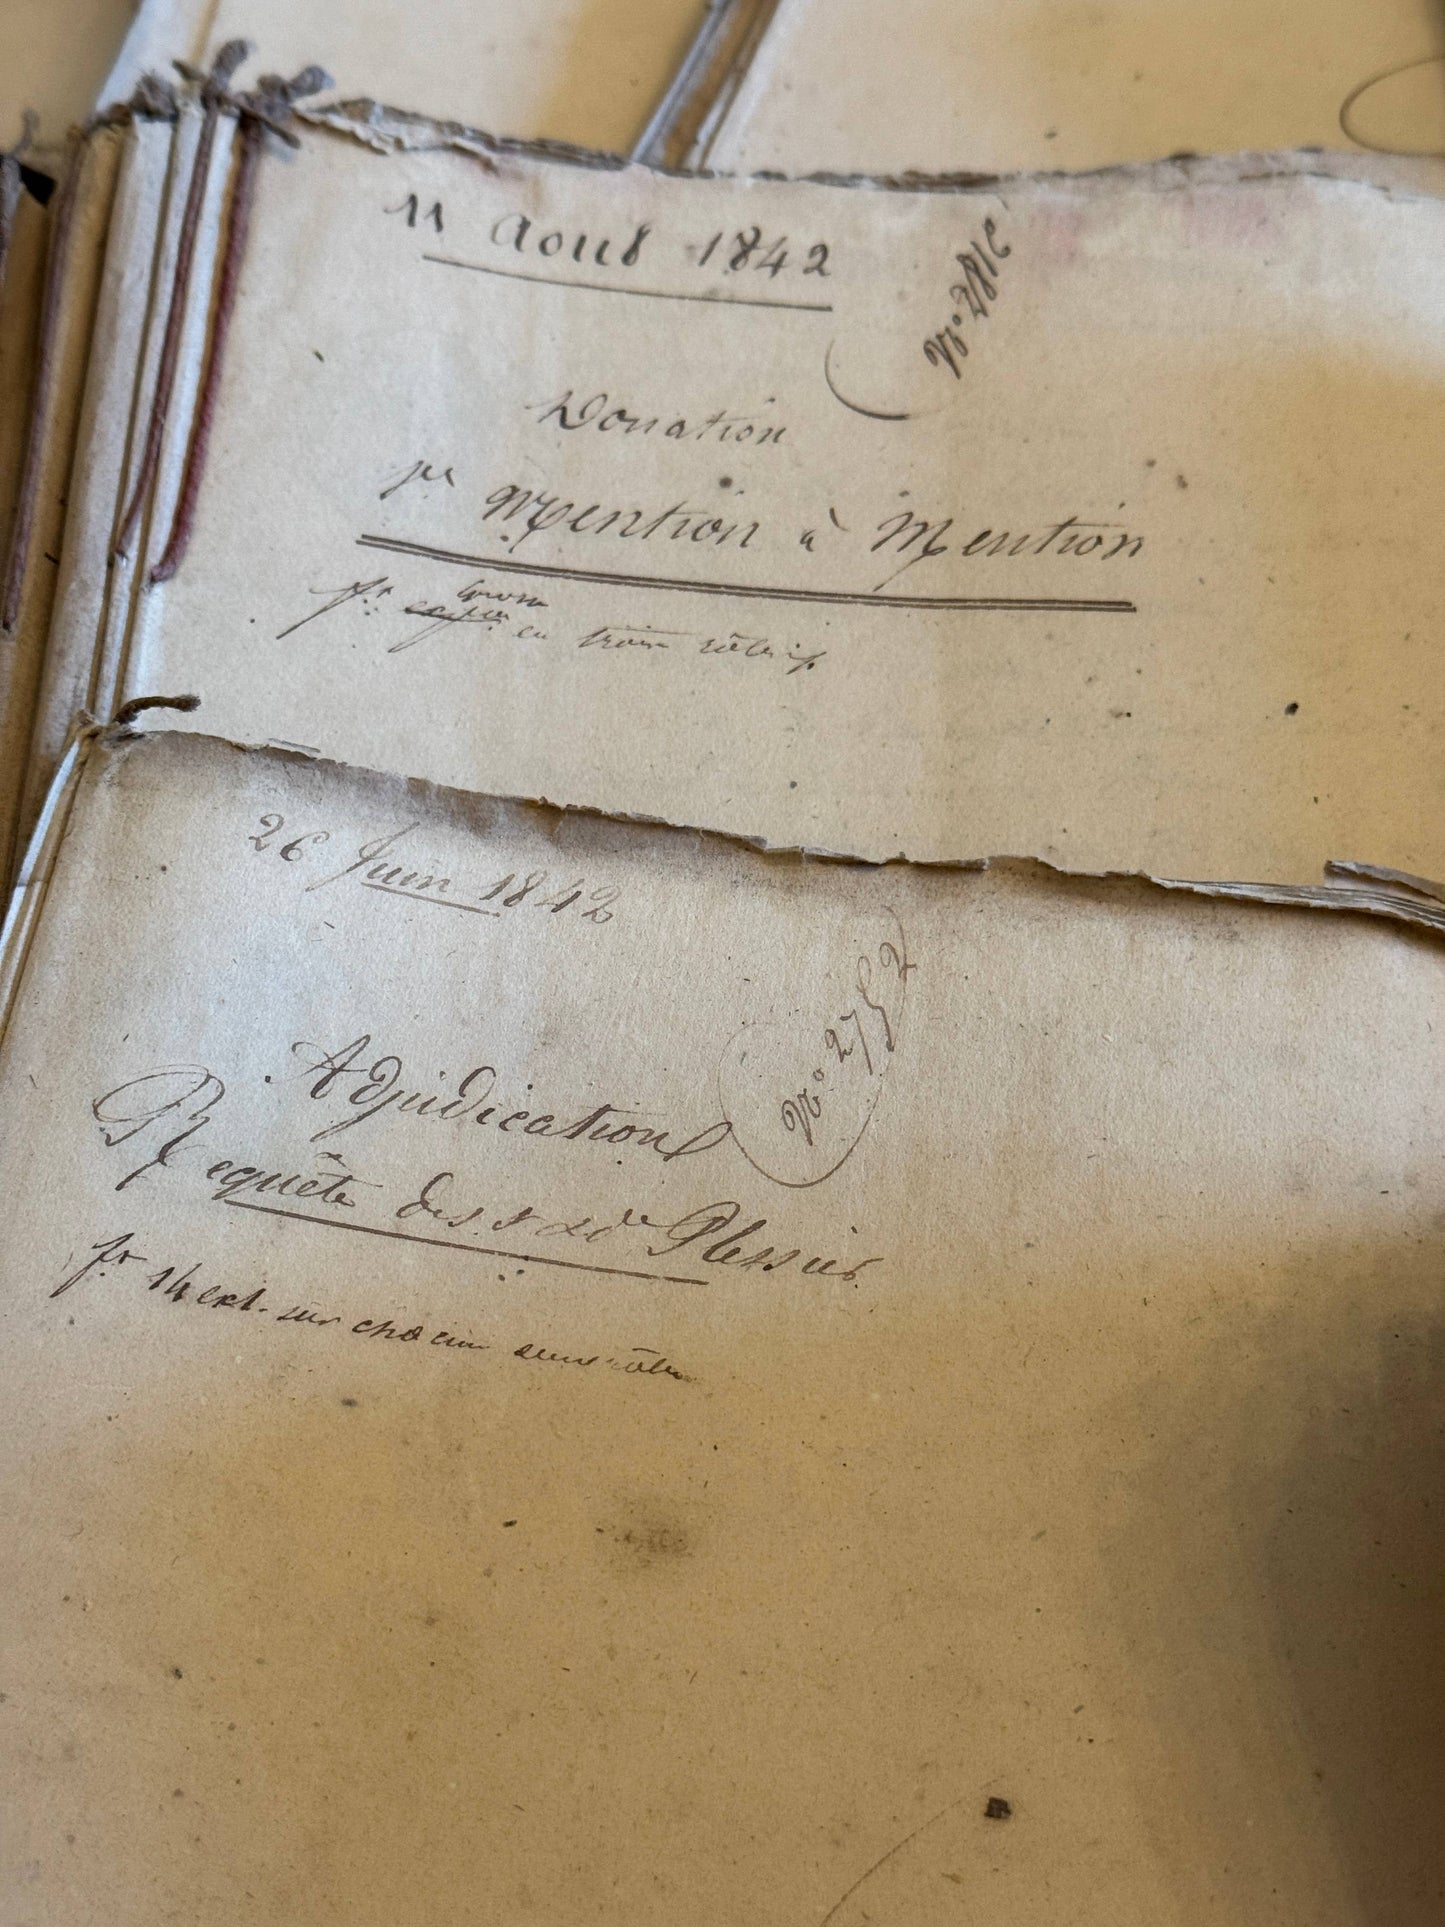 11 Aout 1842
N° 2812
Donation
pr Mention à Mention
fr
grosse
en trois rôles
26 Juin 1842
N° 2752
Adjudication
Requête des Sr & de Plessier
fr 14 ext. sur chacun rôles